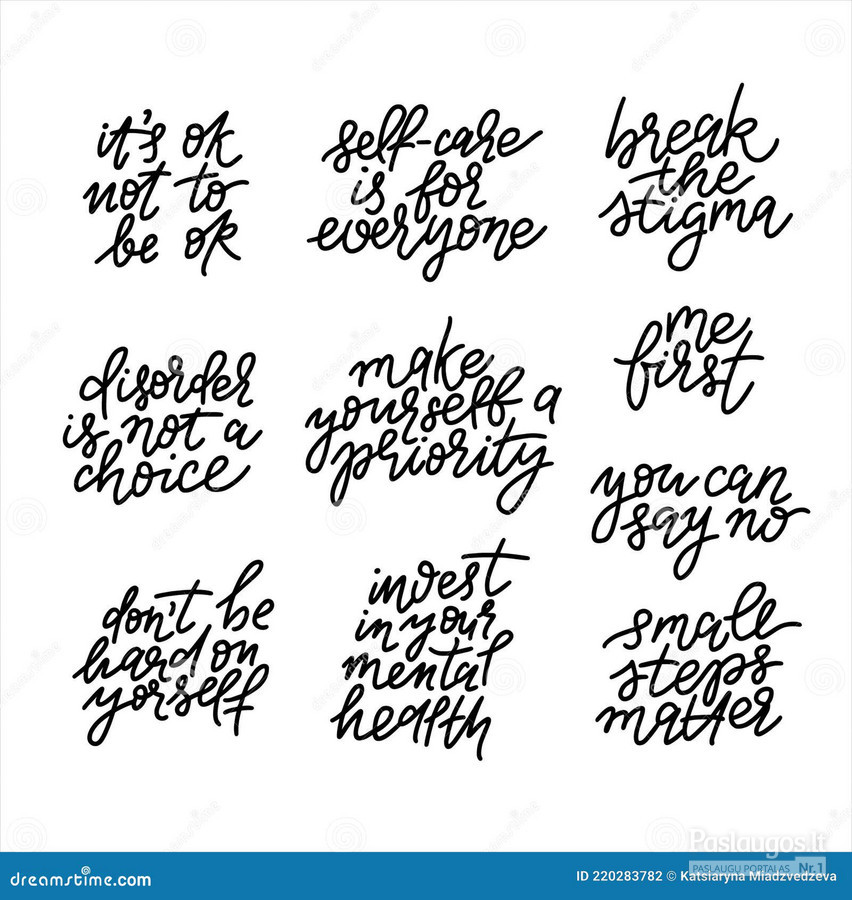 it's ok
not to
be ok
self-care
is for
everyone
break
the
stigma
disorder
is not a
choice
make
yourself a
priority
me
first
you can
say no
don't be
hard on
yorself
invest
in your
mental
health
small
steps
matter
Paslaugos.lt
PASLAUGŲ PORTALAS Nr.1
dreamstime.com
ID 220283782 © Katsiaryna Mladzvedzeva